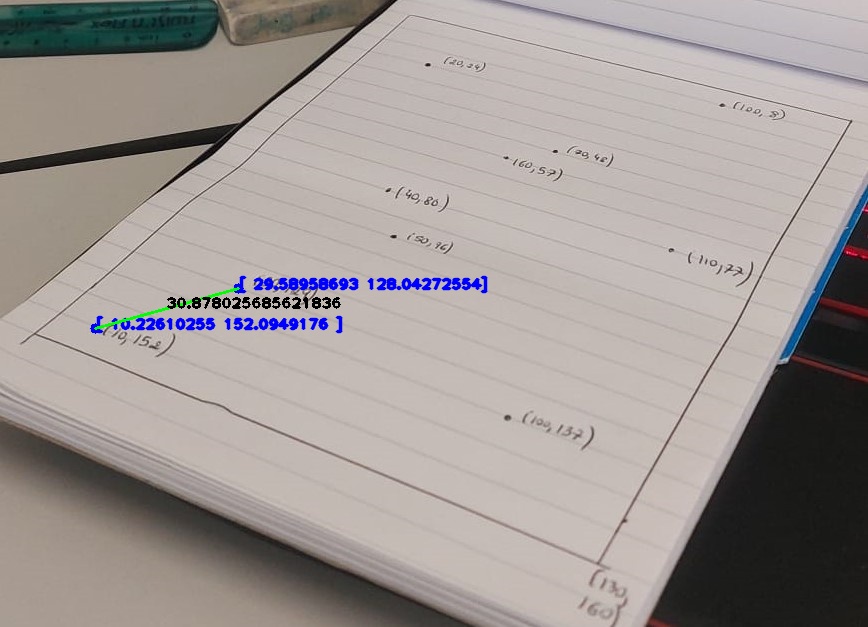 (20,24)
(100,8)
(70,48)
(60,57)
(40,80)
(50,96)
(110,77)
[ 29.58958693 128.04272554]
30.878025685621836
[ 10.22610255 152.0949176 ]
(10,152)
(100,137)
(130,
160)